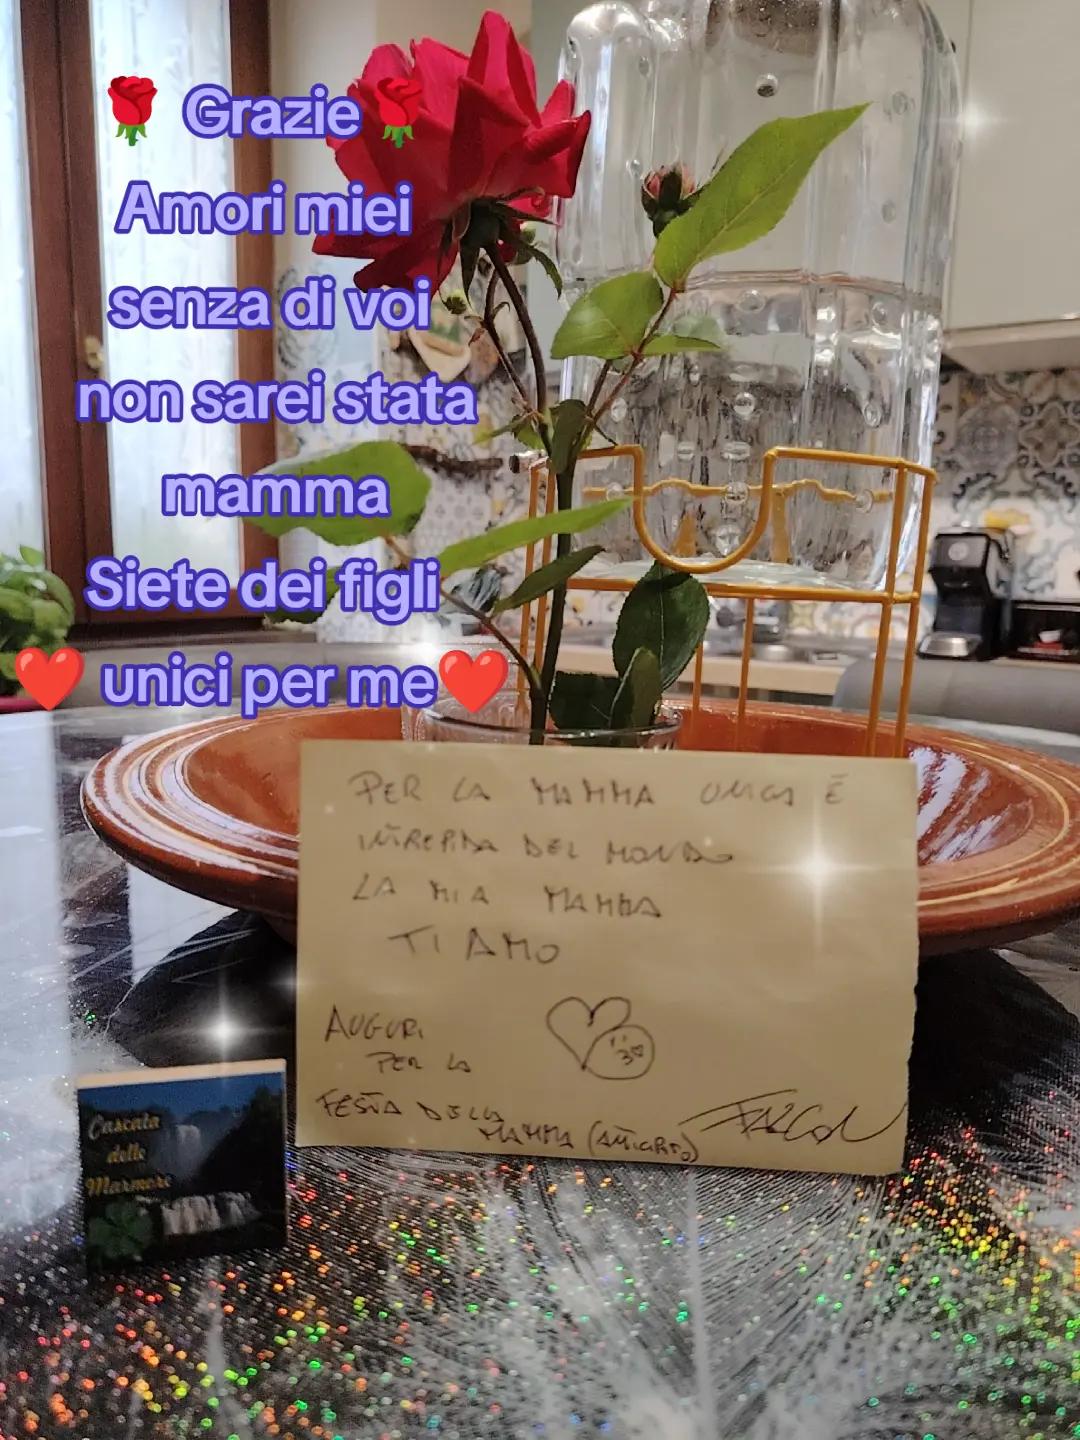 🌹 Grazie🌹
Amori miei
senza di voi
non sarei stata
mamma
Siete dei figli
❤️ unici per me❤️
PER LA MAMMA UNICA E
INTREPIDA DEL MONDO
LA MIA MAMMA
TI AMO
AUGURI
PER LA
FESTA DELLA
MAMMA
Cascata
delle
Marmore